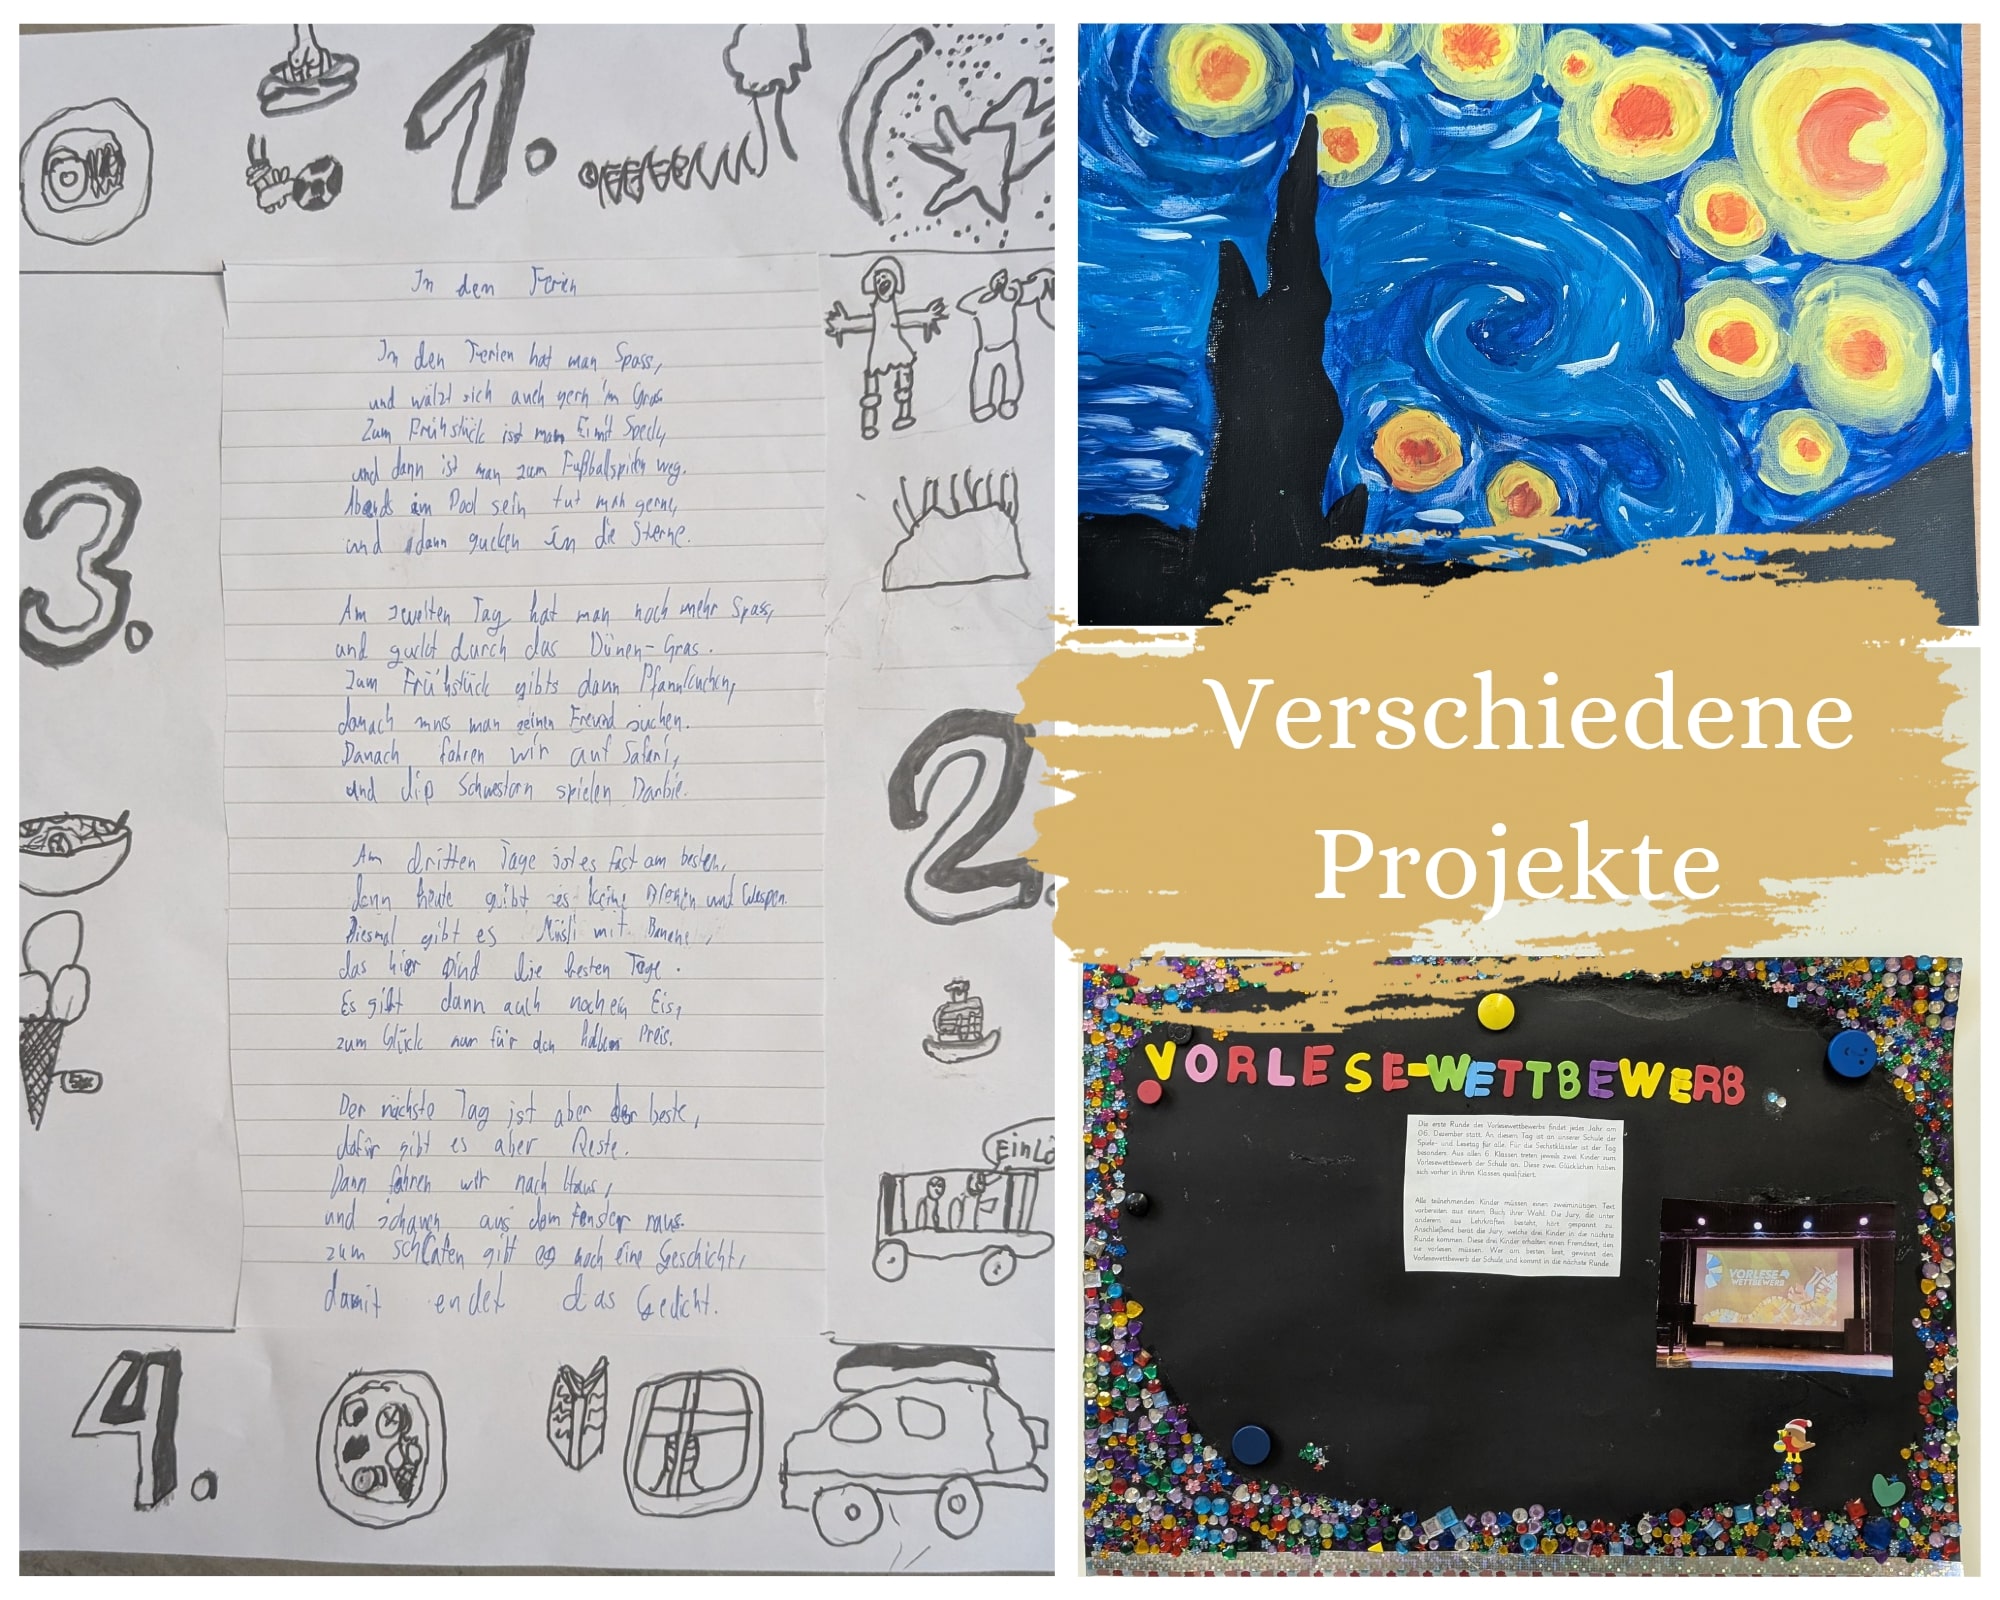 1.
In den Ferien
In den Ferien hat man Spass,
und wälzt sich auch gern im Gras
Zum Frühstück isst man Ei mit Speck,
und dann ist man zum Fußballspielen weg.
Abends im Pool sein tut man gerne,
und dann gucken in die Sterne.
Am zweiten Tag hat man noch mehr Spass,
und guckt durch das Dünen-Gras.
Zum Frühstück gibts dann Pfannkuchen,
danach muss man seinen Freund suchen.
Danach fahren wir auf Safari,
und die Schwestern spielen Barbie.
Am dritten Tage ist es fast am besten,
denn heute gibt es keine Bienen und Wespen.
Diesmal gibt es Müsli mit Banane,
das hier sind die besten Tage.
Es gibt dann auch noch ein Eis,
zum Glück nur für den halben Preis.
Der nächste Tag ist aber der beste,
dafür gibt es aber Reste.
Dann fahren wir nach Haus,
und schauen aus dem Fenster raus.
zum schlafen gibt es noch eine Geschicht,
damit endet das Gedicht.
2.
Ein Lö
3.
4.
Verschiedene
Projekte
VORLESE-WETTBEWERB
Die erste Runde des Vorlesewettbewerbs findet jedes Jahr am
06. Dezember statt. An diesem Tag ist an unserer Schule der
Spiele- und Lesetag für alle. Für die Sechstklässler ist der Tag
besonders. Aus allen 6. Klassen treten jeweils zwei Kinder zum
Vorlesewettbewerb der Schule an. Diese zwei Glücklichen haben
sich vorher in ihren Klassen qualifiziert.
Alle teilnehmenden Kinder müssen einen zweiminütigen Text
vorbereiten aus einem Buch ihrer Wahl. Die Jury, die unter
anderem aus Lehrkräften besteht, hört gespannt zu.
Anschließend berät die Jury, welche drei Kinder in die nächste
Runde kommen. Diese drei Kinder erhalten einen Fremdtext, den
sie vorlesen müssen. Wer am besten liest, gewinnt den
Vorlesewettbewerb der Schule und kommt in die nächste Runde.
VORLESE
WETTBEWERB